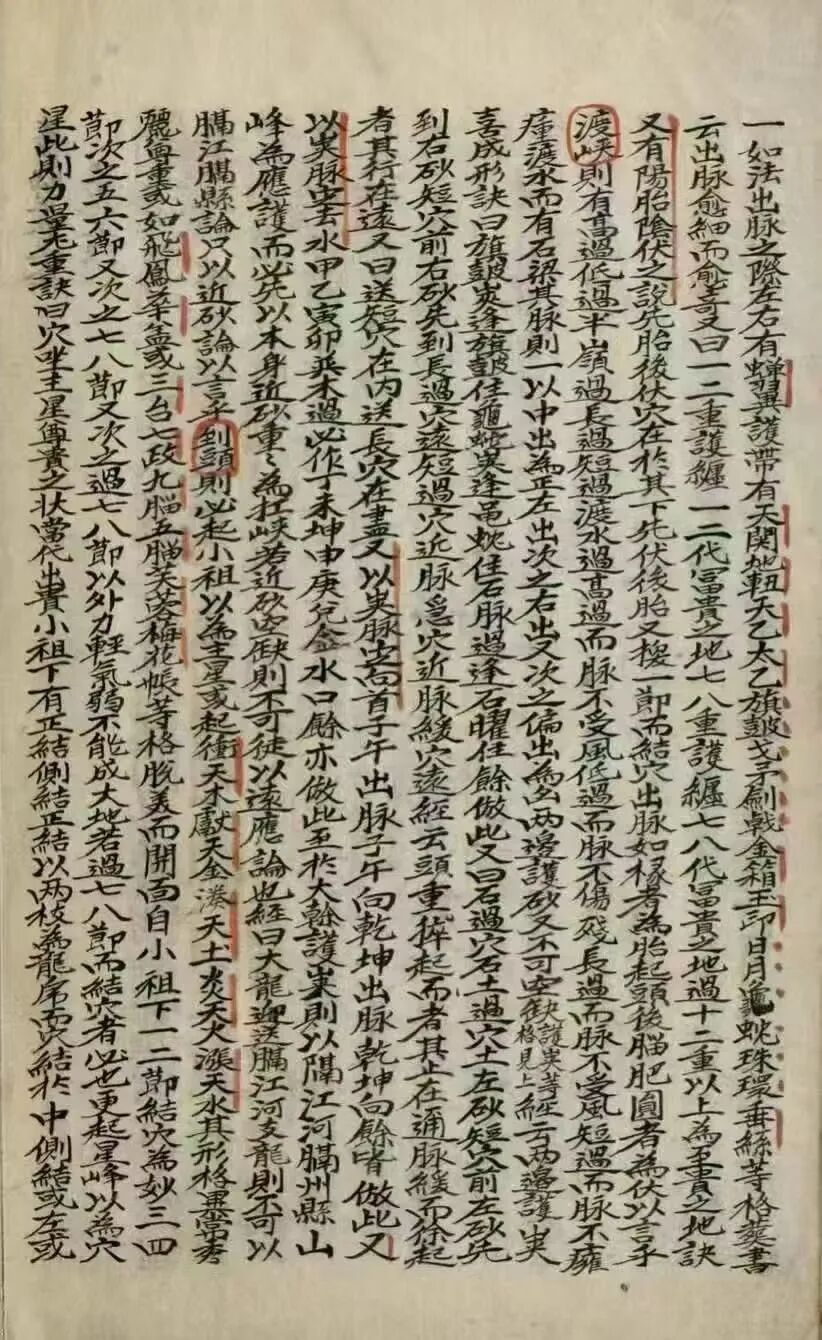 一如法出脉之際左右有蟬翼護帶有天関地軸天乙太乙旗皷戈矛劍戟金箱玉印日月龜蛇珠環垂絲等格葬書
云出脉愈細而愈奇又曰一二重護纏一二代冨貴之地七八重護纏七八代冨貴之地過十二重以上為至貴之地訣
又有陽胎陰伏之說先胎後伏穴在於其下先伏後胎又按一節而結穴出脉如椽者為胎起頭後腦肥圓者為伏以言乎
渡峽則有高過低過半嶺過長過短過渡水過高過而脉不受風低過而脉不傷殘長過而脉不受風短過而脉不癰
瘇渡水而有石梁其脉則一以中出為正左出次之右出又次之偏出為劣两邊護砂又不可空缺護夹等格見上經云两邊護夹
喜成形訣曰旗皷夹逢旗皷住龜蛇夹逢黽蛇住石脉過逢石曜住餘倣此又曰石過穴石土過穴土左砂短穴前左砂先
到右砂短穴前右砂先到長過穴遠短過穴近脉急穴近脉緩穴遠經云頭重猝起而者其止在邇脉緩而徐起
者其行在遠又曰送短穴在内送長穴在盡又以夹脉定向首子午出脉子午向乾坤出脉乾坤向餘皆倣此又
以夹脉定去水甲乙寅卯巽木過必作丁未坤申庚兌金水口餘亦倣此至於大幹護夹則以隔江河膈州縣山
峰為應護而必先以本身近砂重〻為扛峽若近砂空缺則不可徒以遠應論也経曰大龍迎送膈江河支龍則不可以
膈江膈縣論只以近砂論以言乎到頭則必起小祖以為主星或起衝天木獻天金湊天土炎天火漲天水其形格異常秀
麗尊重或如飛鳳華盖或三台七政九腦五腦芙蓉梅花帳等格脫美而開面自小祖下一二節結穴為妙三四
節次之五六節又次之七八節又次之過七八節以外力輕氣弱不能成大地若過七八節而結穴者必也更起星峰以為穴
星此則力量尤重訣曰穴坐主星尊貴之状當代出貴小祖下有正結側結正結以两枝為龍虎而穴結於中側結或左或